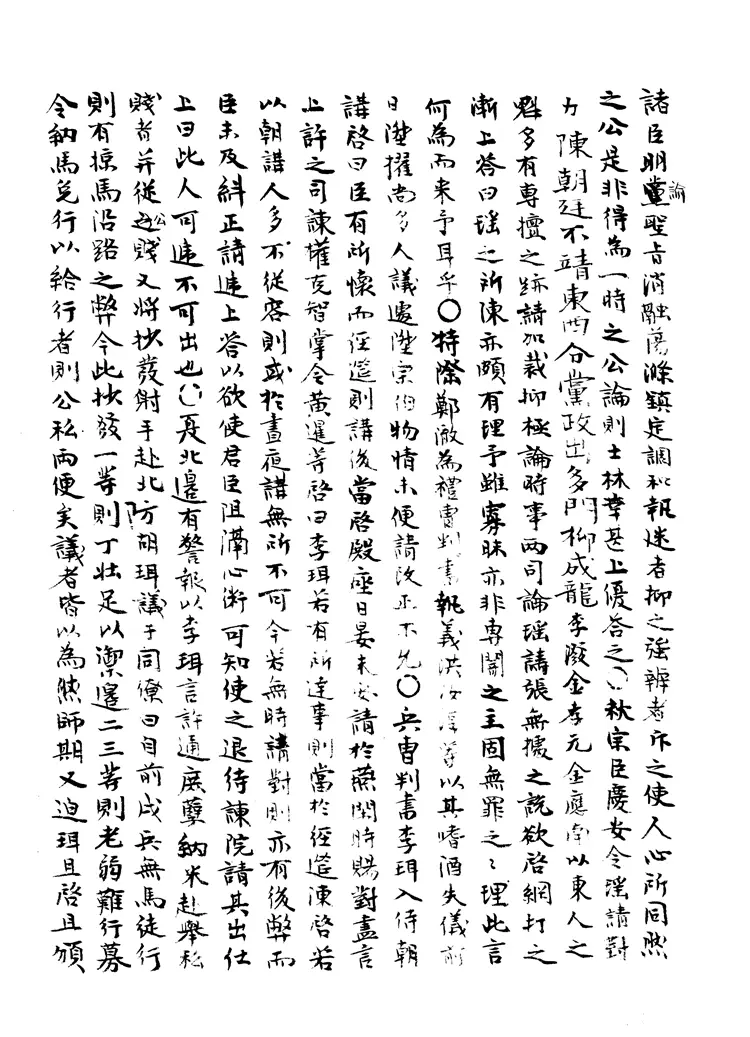 諸臣明黨論聖旨消融蕩滌鎮定調和執迷者抑之強辨者斥之使人心所同然
之公是非得為一時之公論則士林幸甚上優答之○秋宗臣慶安令瑤請對
力陳朝廷不靖東西分黨政出多門柳成龍李潑金孝元金應南以東人之
魁多有專擅之跡請加裁抑極論時事兩司論瑤譸張無據之說欲啓網打之
漸上答曰瑤之所陳亦頗有理予雖寡昧亦非專闇之主固無罪之之理此言
何為而来予耳乎○特除鄭澈為禮曹判書執義洪汝諄等以其嗜酒失儀前
日陞擢尚多人議遽陞宗伯物情未便請改正不允○兵曹判書李珥入侍朝
講啓曰臣有所懷而經筵則講後當啓殿座日晏未安請於燕閑時賜對盡言
上許之司諫權克智掌令黄暹等啓曰李珥若有所達事則當於經筵陳啓若
以朝講人多不從容則或於晝夜講無所不可今若無時請對則亦有後弊而
臣未及糾正請遞上答以欲使君臣阻滿心術可知使之退待諫院請其出仕
上曰此人可遞不可出也○夏北邊有警報以李珥言許通庶孽納米赴舉私
賤者并從公賤又將抄發射手赴北方胡珥議于同僚曰自前戍兵無馬徒行
則有掠馬沿路之弊今此抄發一等則丁壮足以禦邊二三等則老弱難行募
令納馬免行以給行者則公私兩便矣議者皆以為然師期又迫珥且啓且頒